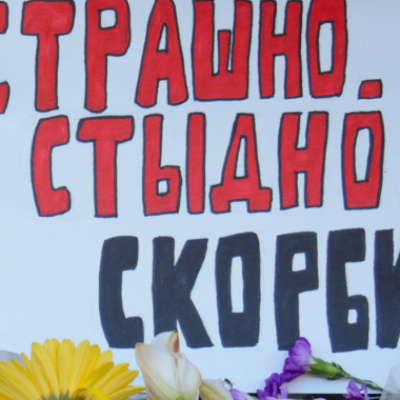 СТРАШНО.
СТЫДНО
СКОРБИ